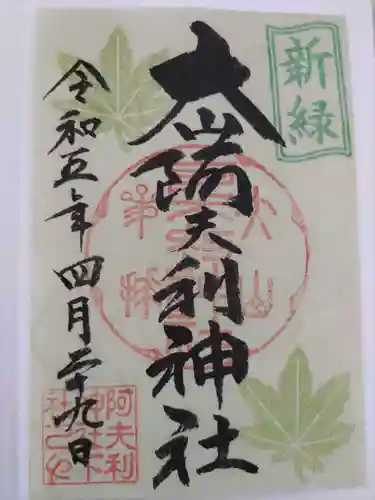 新緑
大山阿夫利神社
令和五年四月二十九日
阿夫利
神社下
社之印